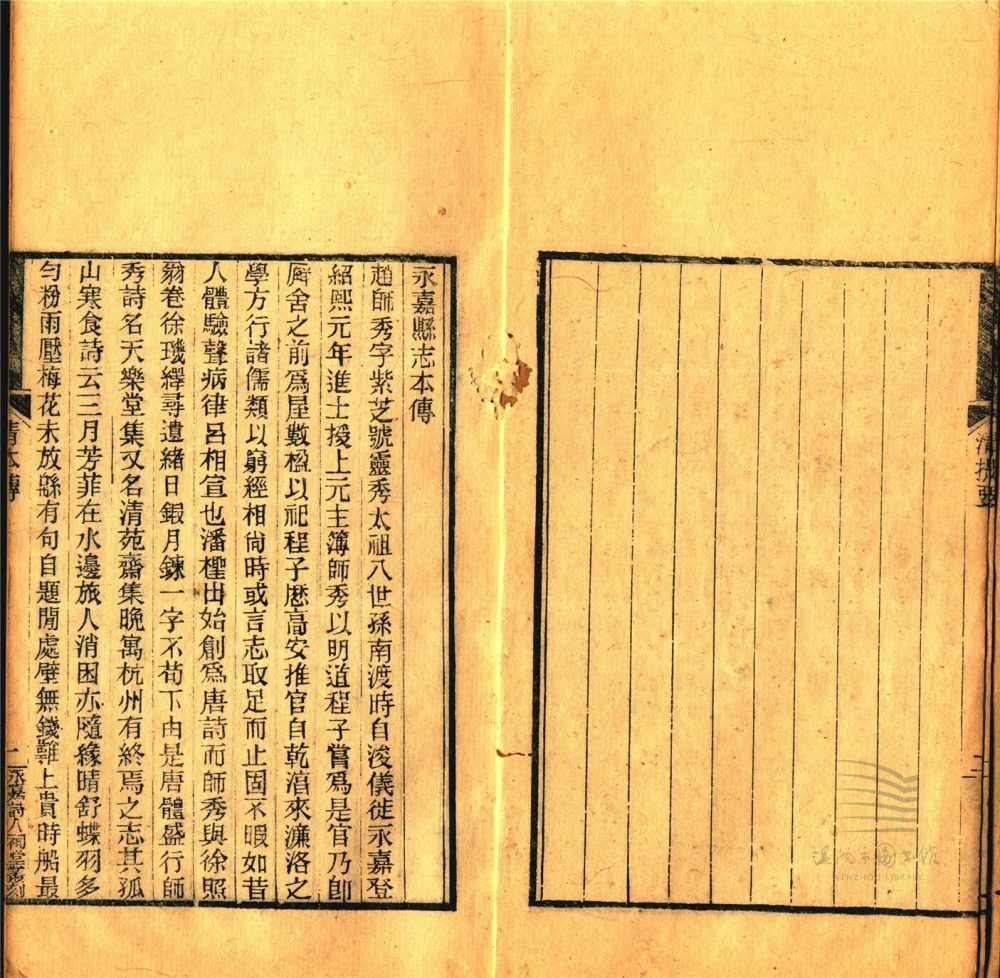 永嘉縣志本傳
趙師秀字紫芝號靈秀太祖八世孫南渡時自浚儀徙永嘉登
紹熙元年進士授上元主簿師秀以明道程子嘗爲是官乃卽
廨舍之前爲屋數楹以祀程子歷高安推官自乾淳來濂洛之
學方行諸儒類以窮經相尙時或言志取足而止固不暇如昔
人體驗聲病律呂相宣也潘檉出始創爲唐詩而師秀與徐照
翁卷徐璣繹尋遺緒日鍛月鍊一字不苟下由是唐體盛行師
秀詩名天樂堂集又名清苑齋集晚寓杭州有終焉之志其孤
山寒食詩云三月芳菲在水邊旅人消困亦隨緣晴舒蝶羽多
勻粉雨壓梅花未放緜有句自題閒處壁無錢難上貴時船最
清本傳
二
永嘉詩人祠堂叢刻
提要
二
溫州市圖書館
WENZHOU LIBRARY